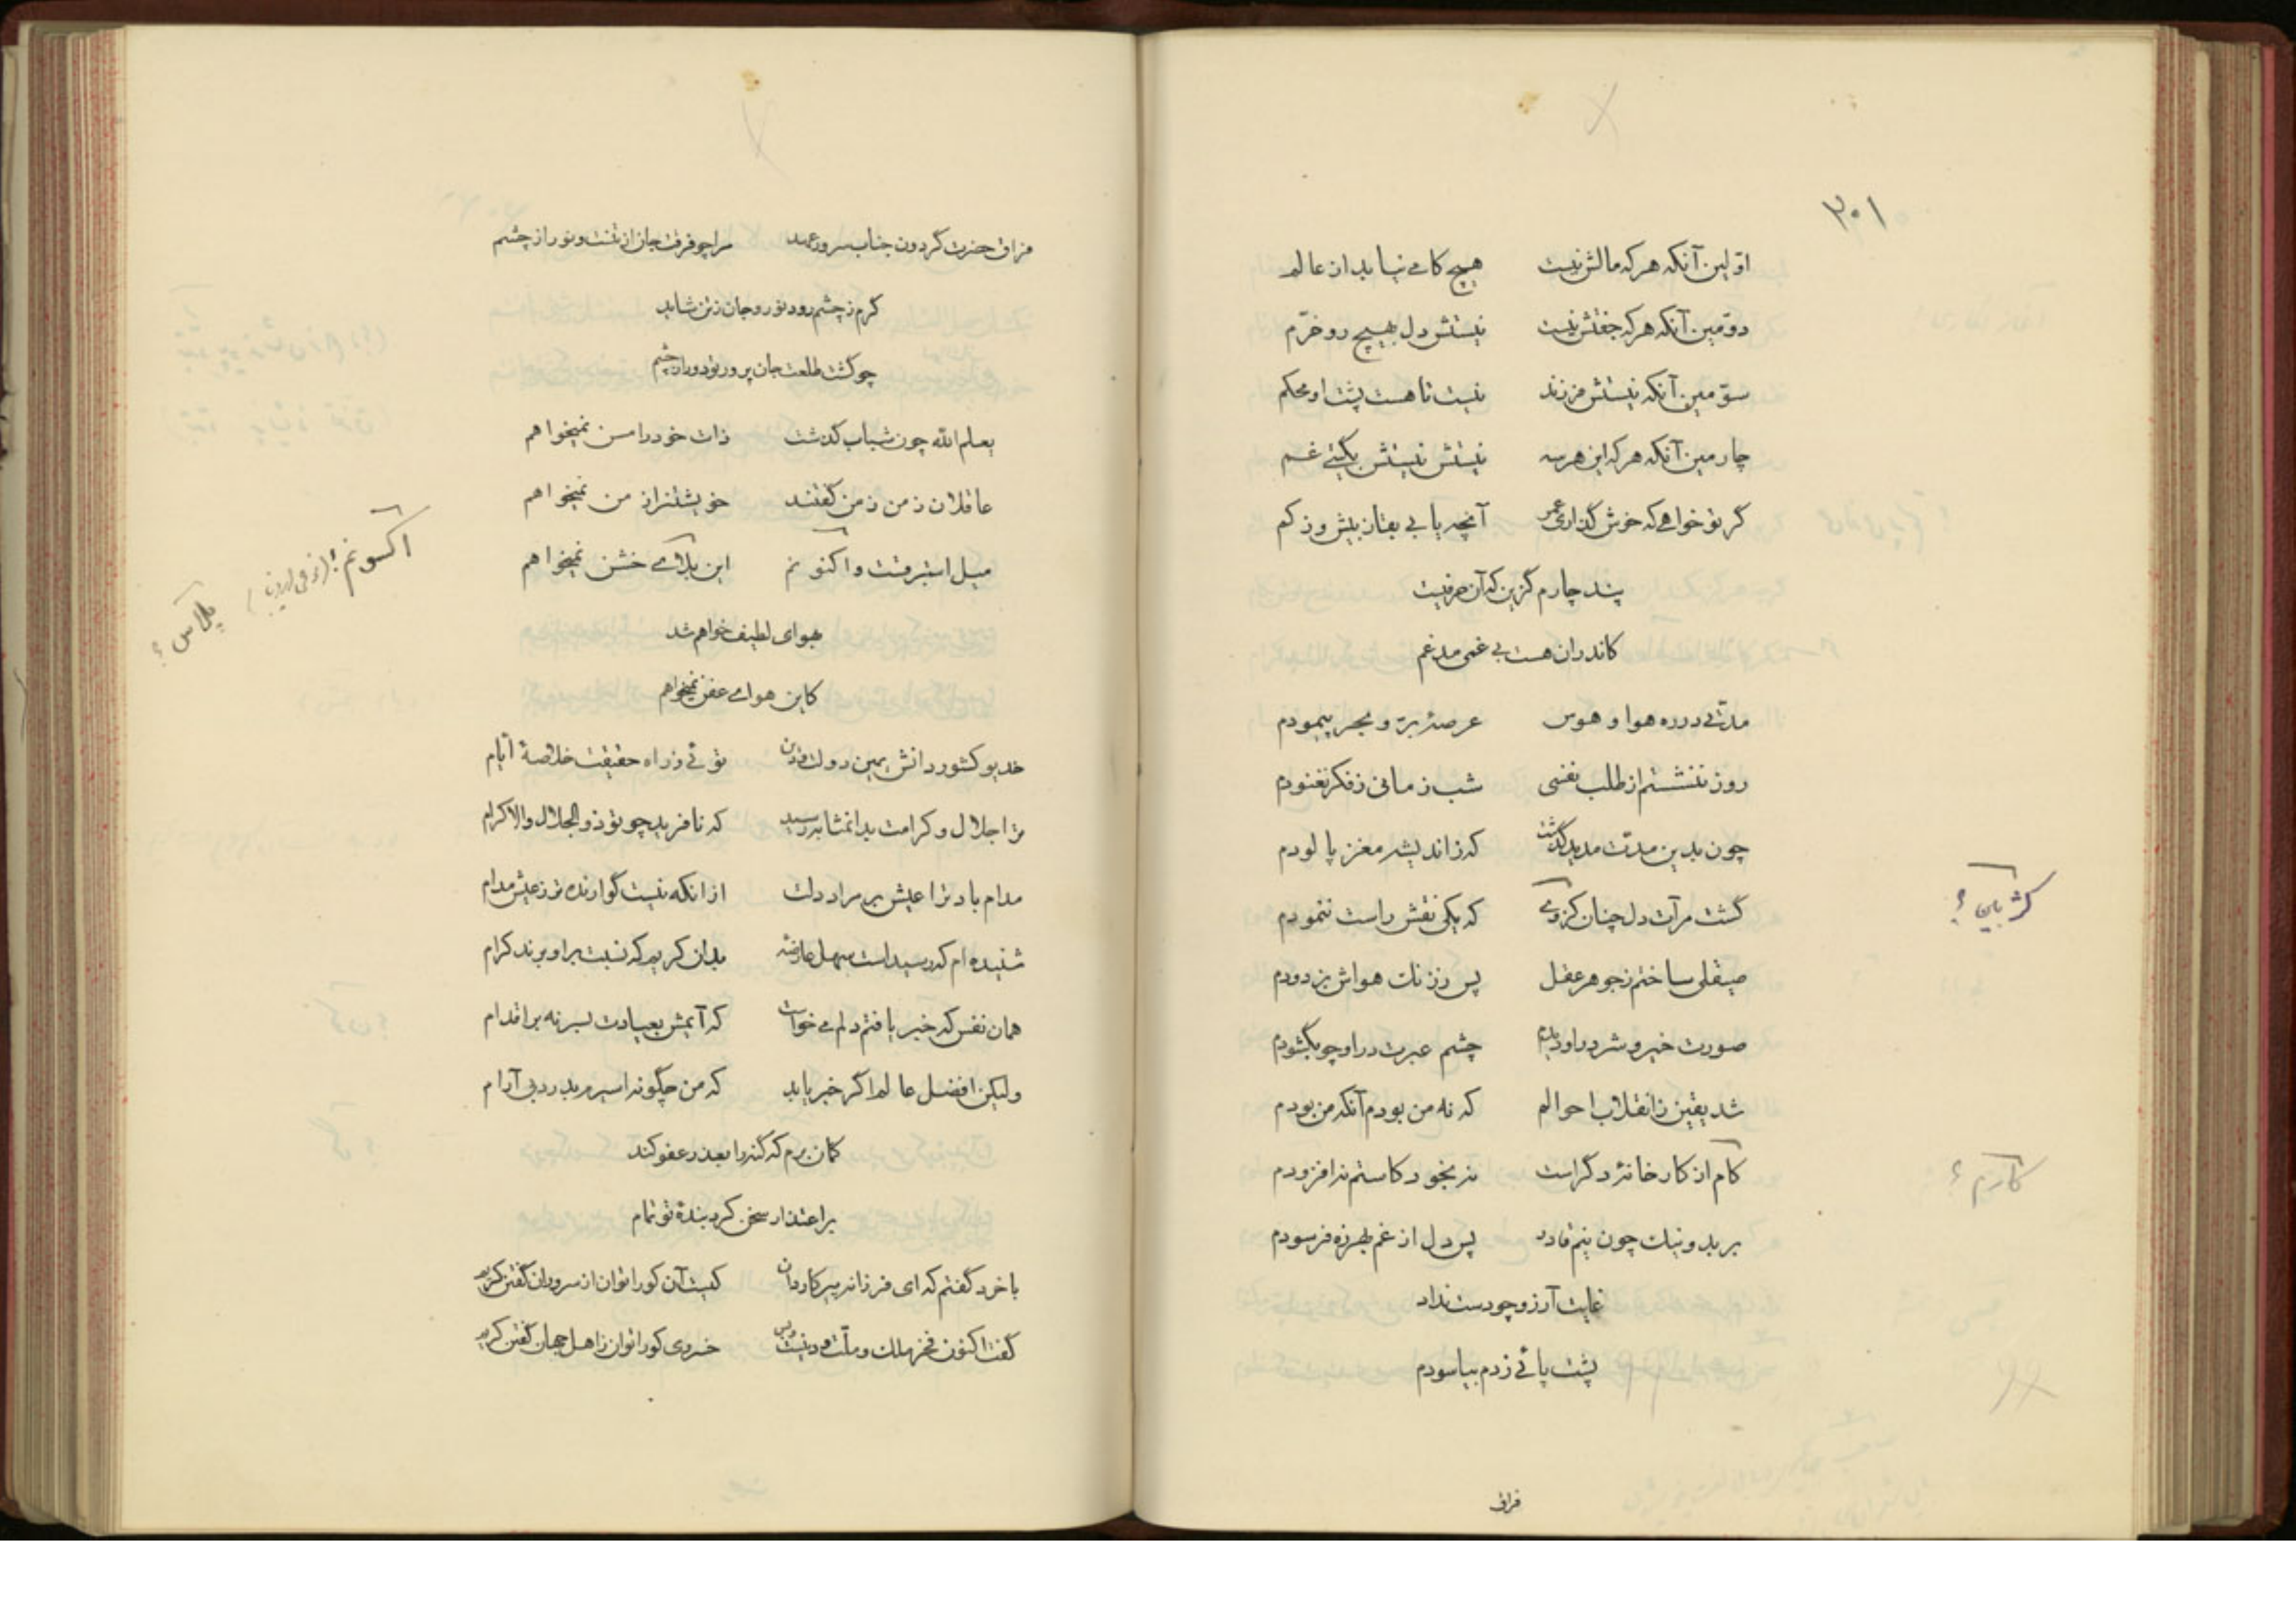 ۳۰۱
اوّلین آنکه هرکه مالش نیست هیچ کامی نیابد از عالم
دوّمین آنکه هرکه جفتش نیست نیستش دل بهیچ رو خرّم
سوّمین آنکه نیستش فرزند نیست تا هست پشت او محکم
چارمین آنکه هرکه این هرسه نیستش نیستش بگیتی غم
گر تو خواهی که خوش گذاری عمر آنچه یابی بیش و ز کم
پند چارم گزین که آن حرفیست
کاندران هست بی غمی مدغم
مدّتی در ره هوا و هوس عرصهٔ برّ و بحر پیمودم
روز ننشستم از طلب نفسی شب زمانی ز فکر نغنودم
چون بدین مدّت مدید گذشت که ز اندیشه مغز پالودم
گشت مرآت دل چنان کژ که یکی نقش راست ننمودم
کژ
صیقلی ساختم ز جوهر عقل پس ز زنك هواش بزدودم
صورت خیر و شر در او دیدم چشم عبرت در او چو بگشودم
شد یقین ز انقلاب احوالم که نه من بودم آنکه من بودم
کام از کارخانهٔ دگر است نه بخود کاستم نه افزودم
کارم؟
بر بد و نیك چون نیم قادر پس دل از غم بهرزه فرسودم
غایت آرزو چو دست نداد
پشت پائی زدم بیاسودم
فراق
فراق حضرت گردون جناب سرور عهد مرا چو فرقت جان از تنست و نور از چشم
گرم ز چشم رود نور و جان ز تن شاید
چو گشت طلعت جان پرور تو دور از چشم
یعلم الله چون شباب گذشت ذات خود را مسن نمیخواهم
عاقلان ز من ز من گفتند خویشتن را ز من نمیخواهم
میل استبرقست و اکنونم این پلاس خشن نمیخواهم
اکسونم؟
پلاس؟
هوای لطیف خواهم شد
کاین هوای عفن نمیخواهم
خدیو کشور دانش یمین دولت و دین توئی ز راه حقیقت خلاصهٔ ایّام
ترا جلال و کرامت بدانمثابه رسید که نافرید چو تو ذوالجلال والاکرام
مدام باد ترا عیش بر مراد دلت از انکه نیست گوارنده تر ز عیش مدام
شنیده‌ام که رسیداست سهل عارضهٔ بدان کریم که نسبت بر او برند کرام
همان نفس که خبر یافتم دلم می خواست که آیمش بعیادت بسر نه بر اقدام
ولیکن افضل عالم اگر خبر یابد که من چگونه اسیرم بدرد بی آرام
گمان برم که گنه را بعذر عفو کند
بر اعتذار سخن کرد بندهٔ تو تمام
با خرد گفتم که ای فرزانه پیر کاردان کیست آن کو را توان از سروران گفتن کریم
گفت اکنون فخر ملك و ملّت و دینست و بس خسروی کو را توان ز اهل جهان گفتن کریم